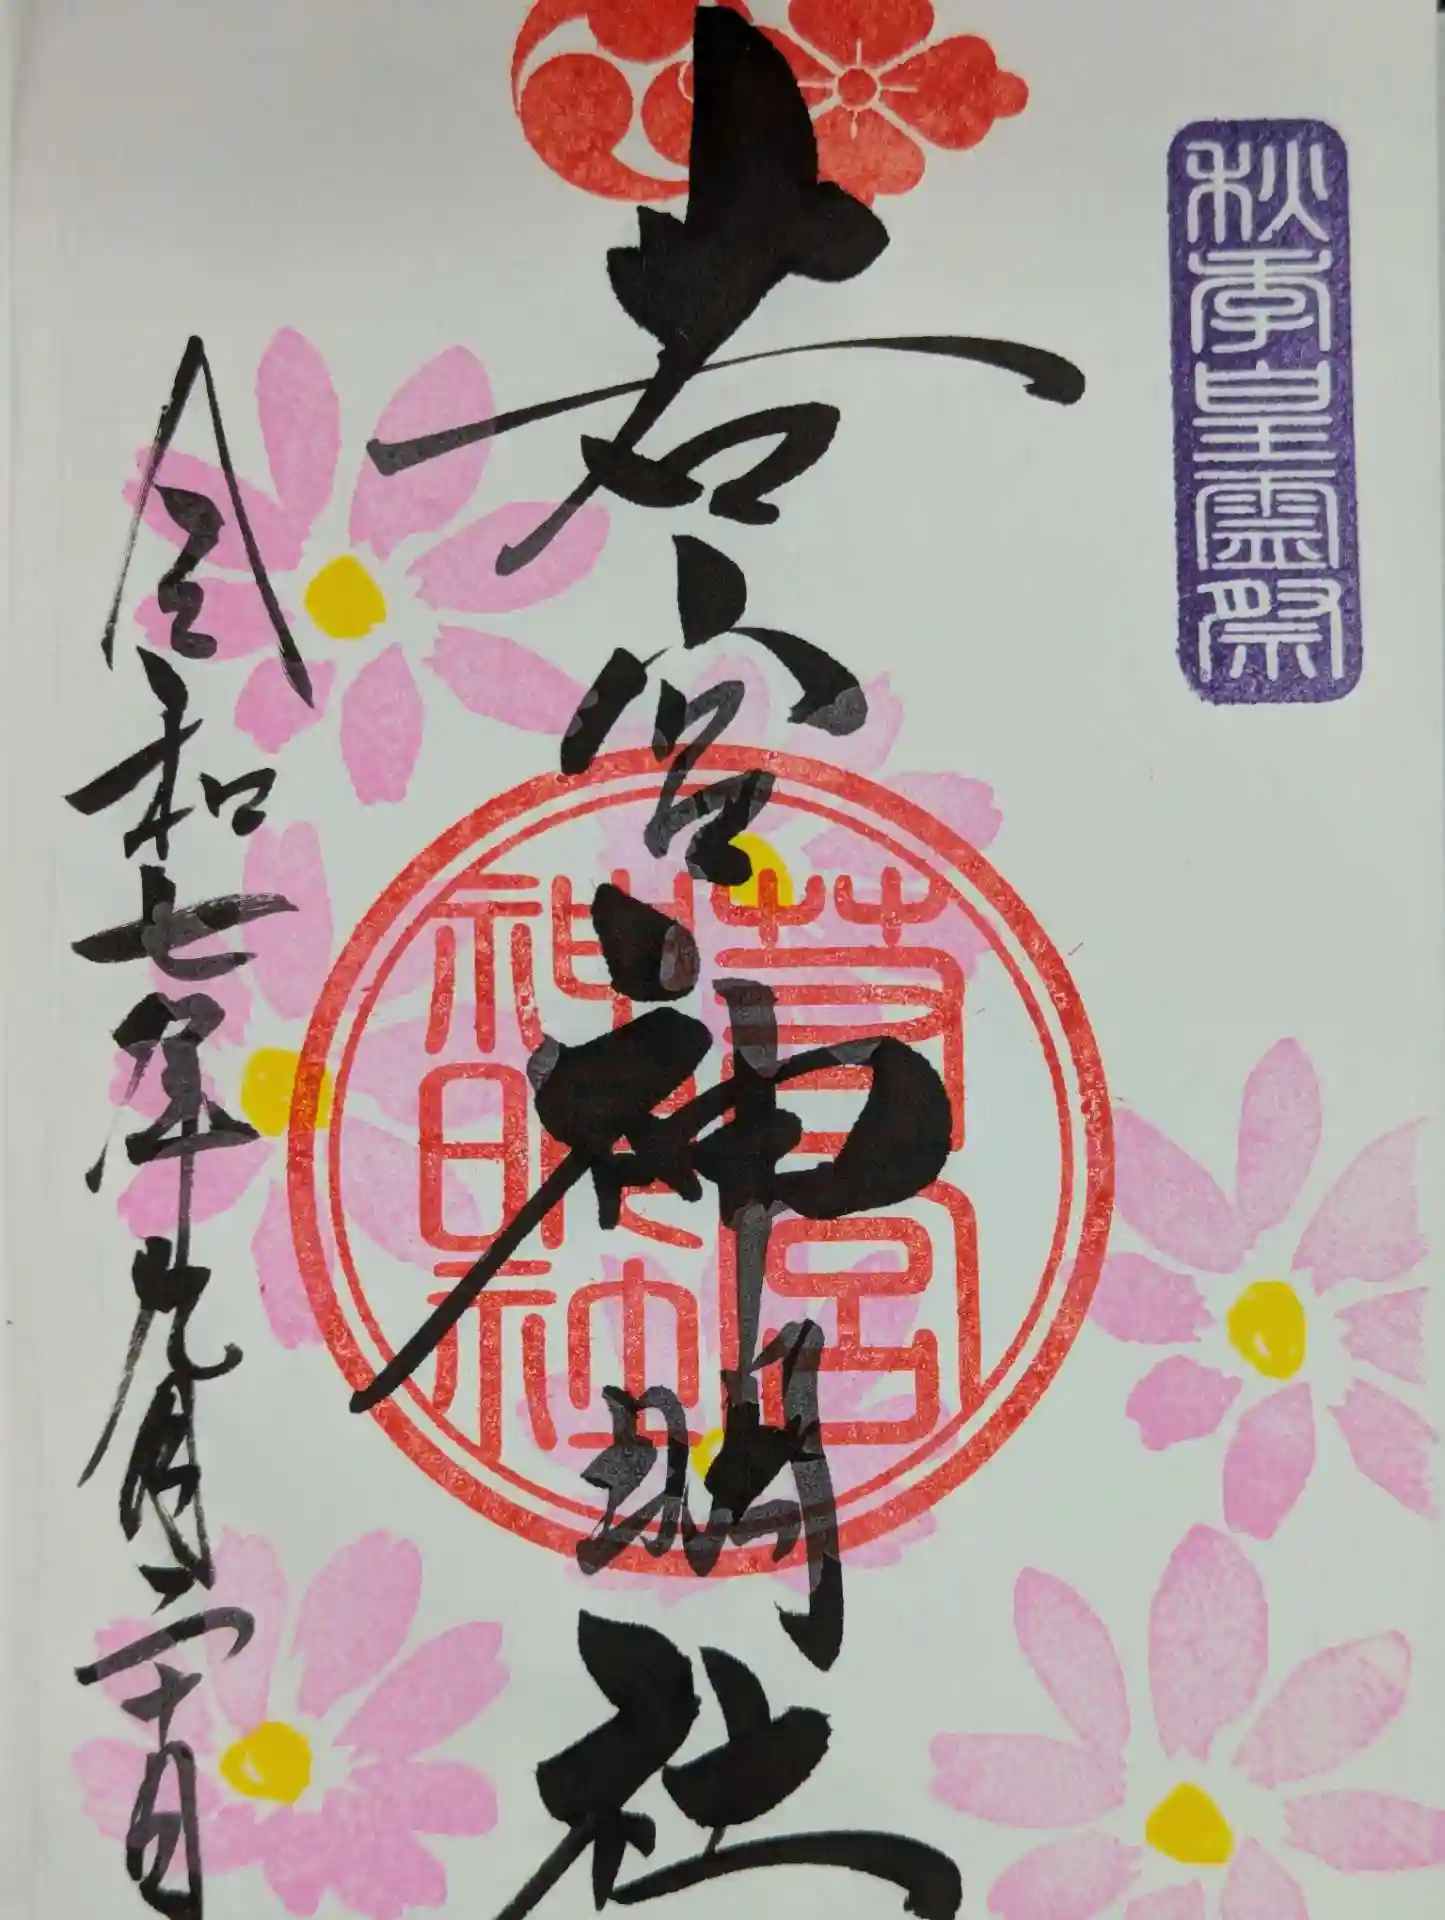 秋季皇霊祭
若宮神明社
若宮
神明社
令和七年九月二十日